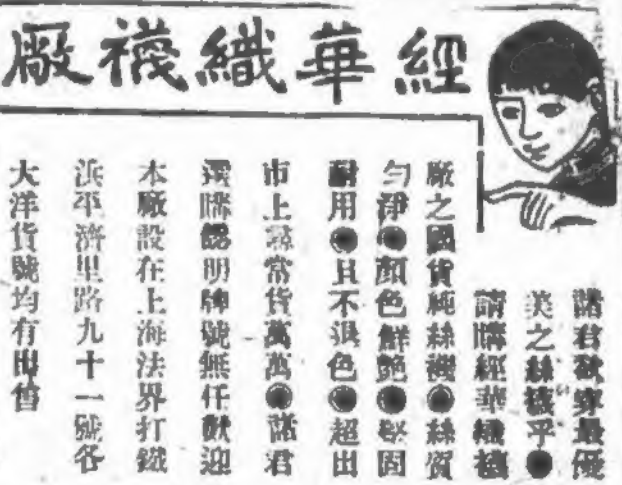 經華織襪廠
諸君欲穿最優
美之絲襪乎●
請購經華織襪
廠之國貨純絲襪●絲質
勻淨●顏色鮮艷●堅固
耐用●且不退色●超出
市上尋常貨萬萬●諸君
選購認明牌號無任歡迎
本廠設在上海法界打鐵
浜平濟里路九十一號各
大洋貨號均有出售